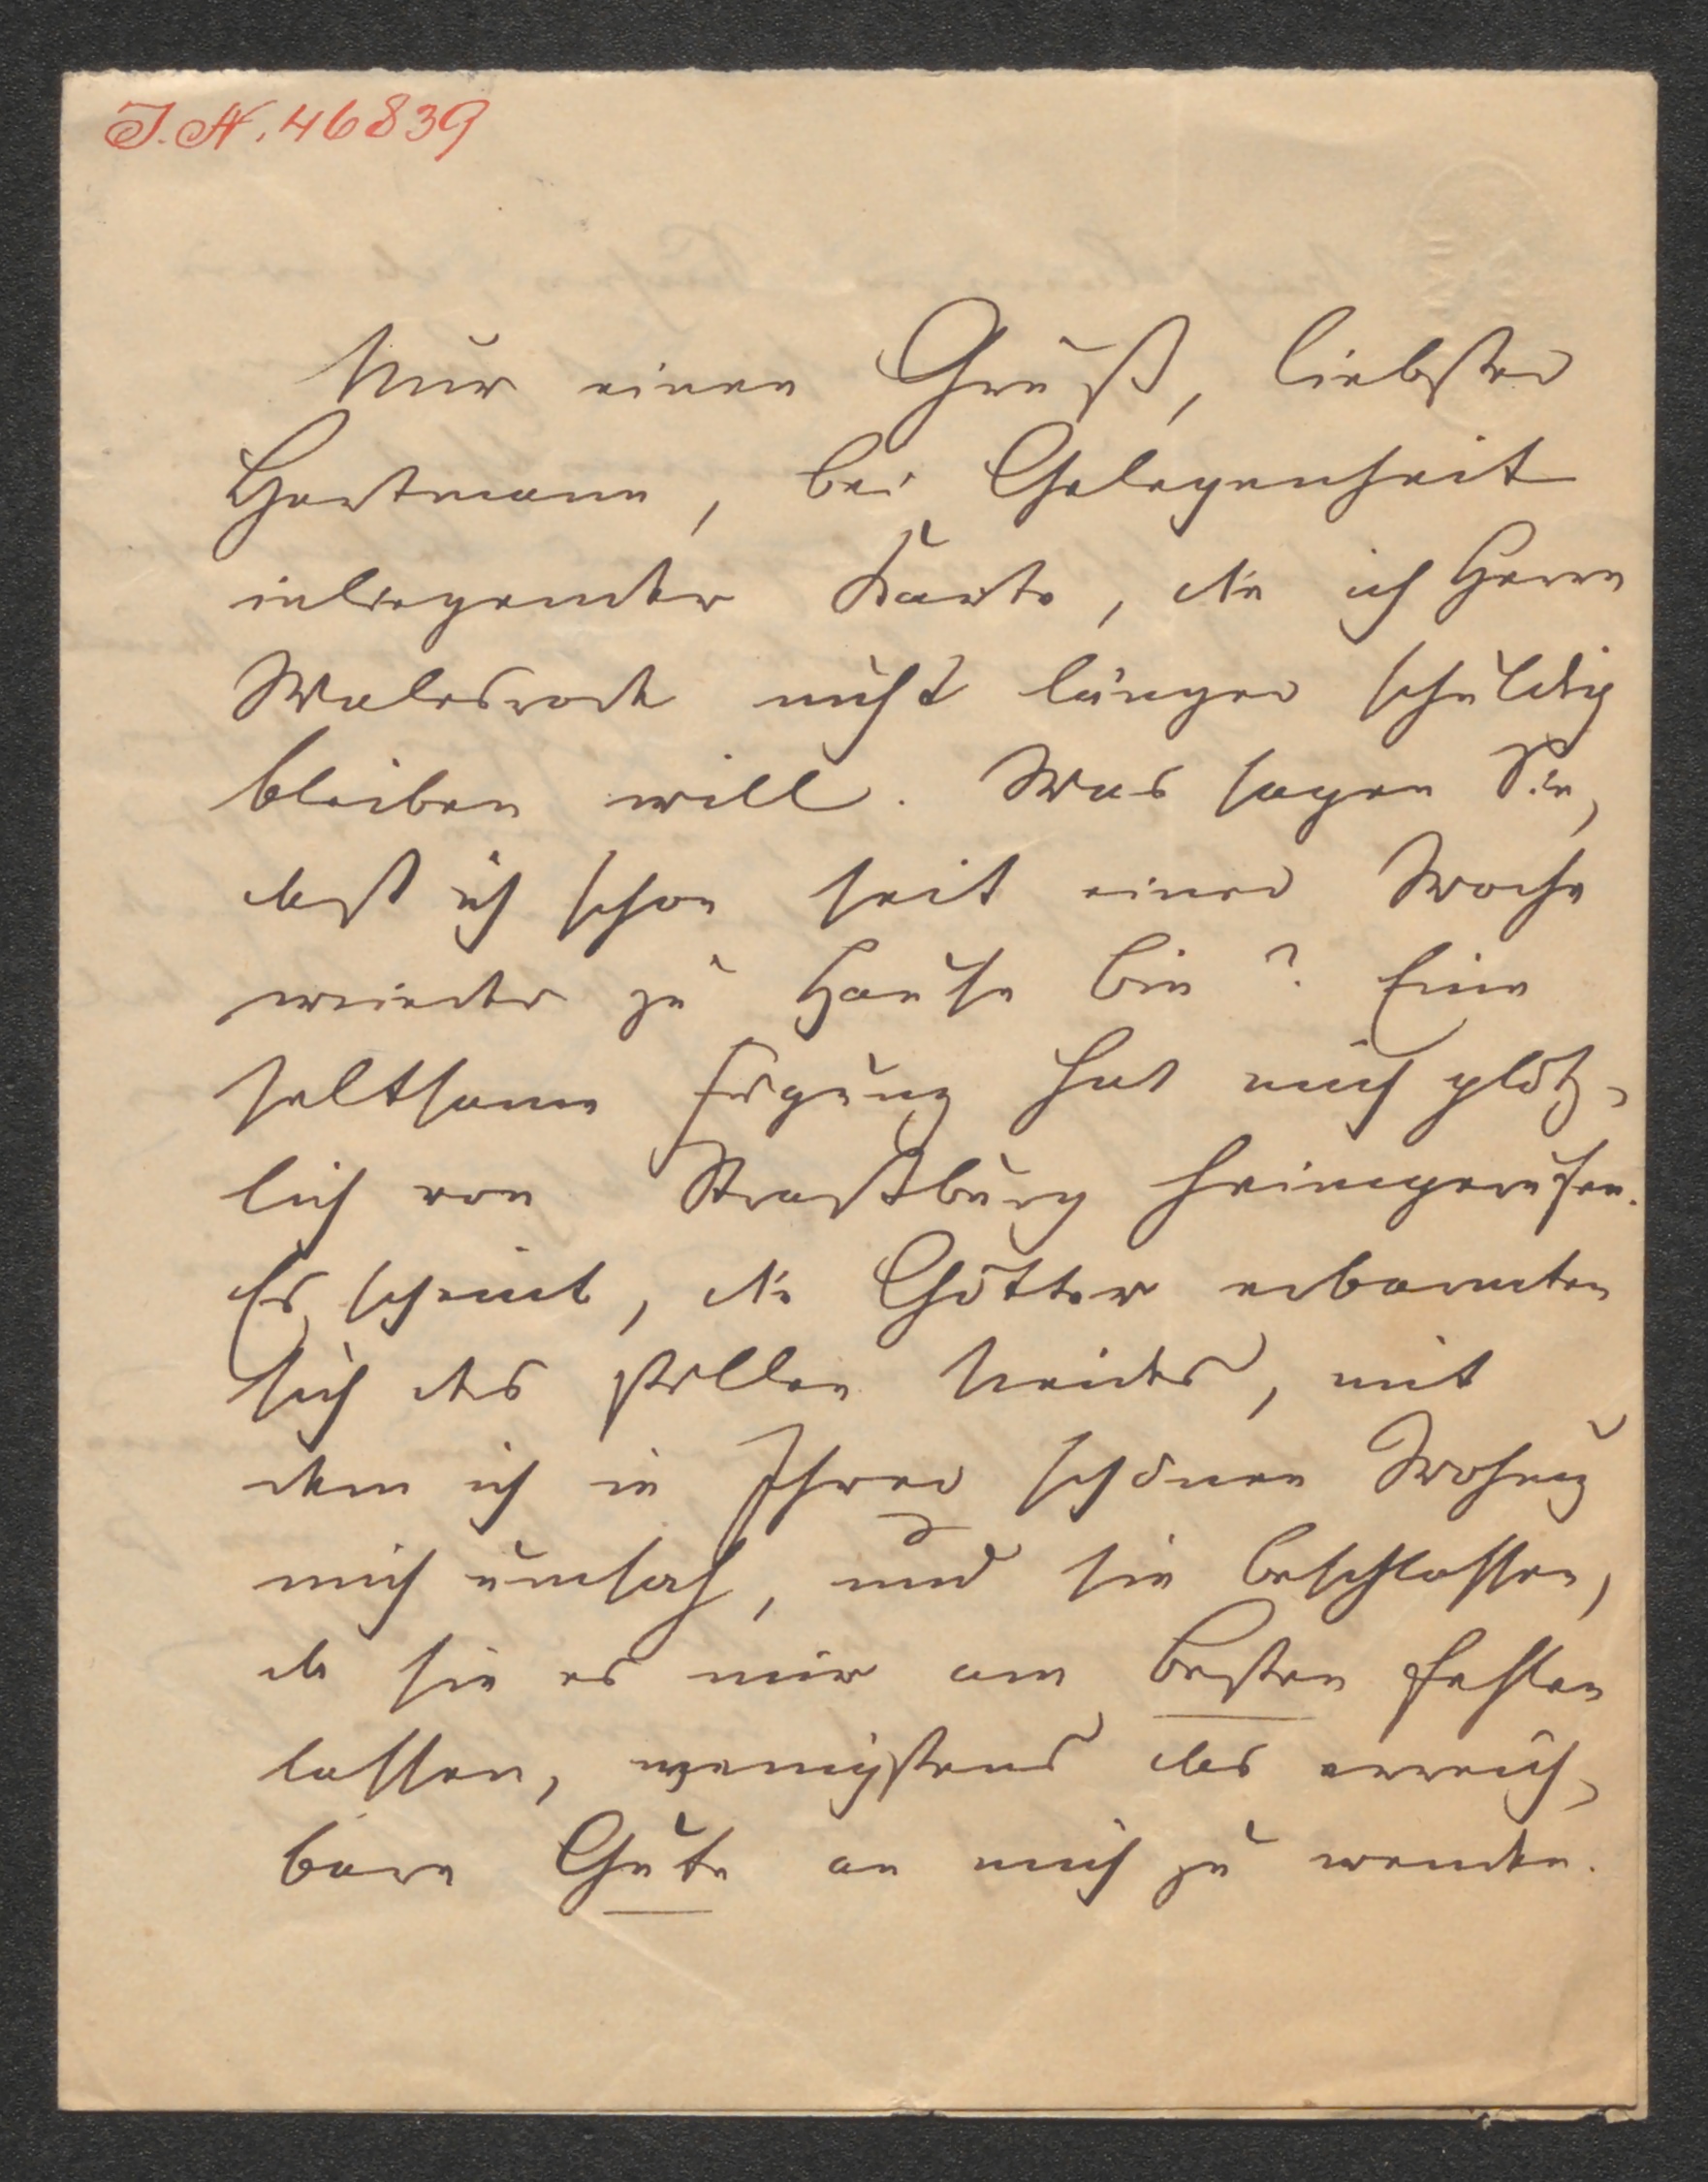 J.N. 46839
Nur einen Gruß, liebster
Hartmann, bei Gelegenheit
inliegender Karte, die ich Herrn
Walesrode nicht länger schuldig
bleiben will. Was sagen Sie,
daß ich schon seit einer Woche
wieder zu Hause bin? Eine
seltsame Fügung hat mich plötz-
lich von Straßburg heimgerufen.
Es scheint, die Götter erbarmten
sich des stillen Neides, mit
dem ich in Ihrer schönen Wohnung
mich umsah, und sie beschlossen,
da sie es mir am Besten fehlen
lassen, wenigstens das erreich-
bare Gute an mich zu wenden.